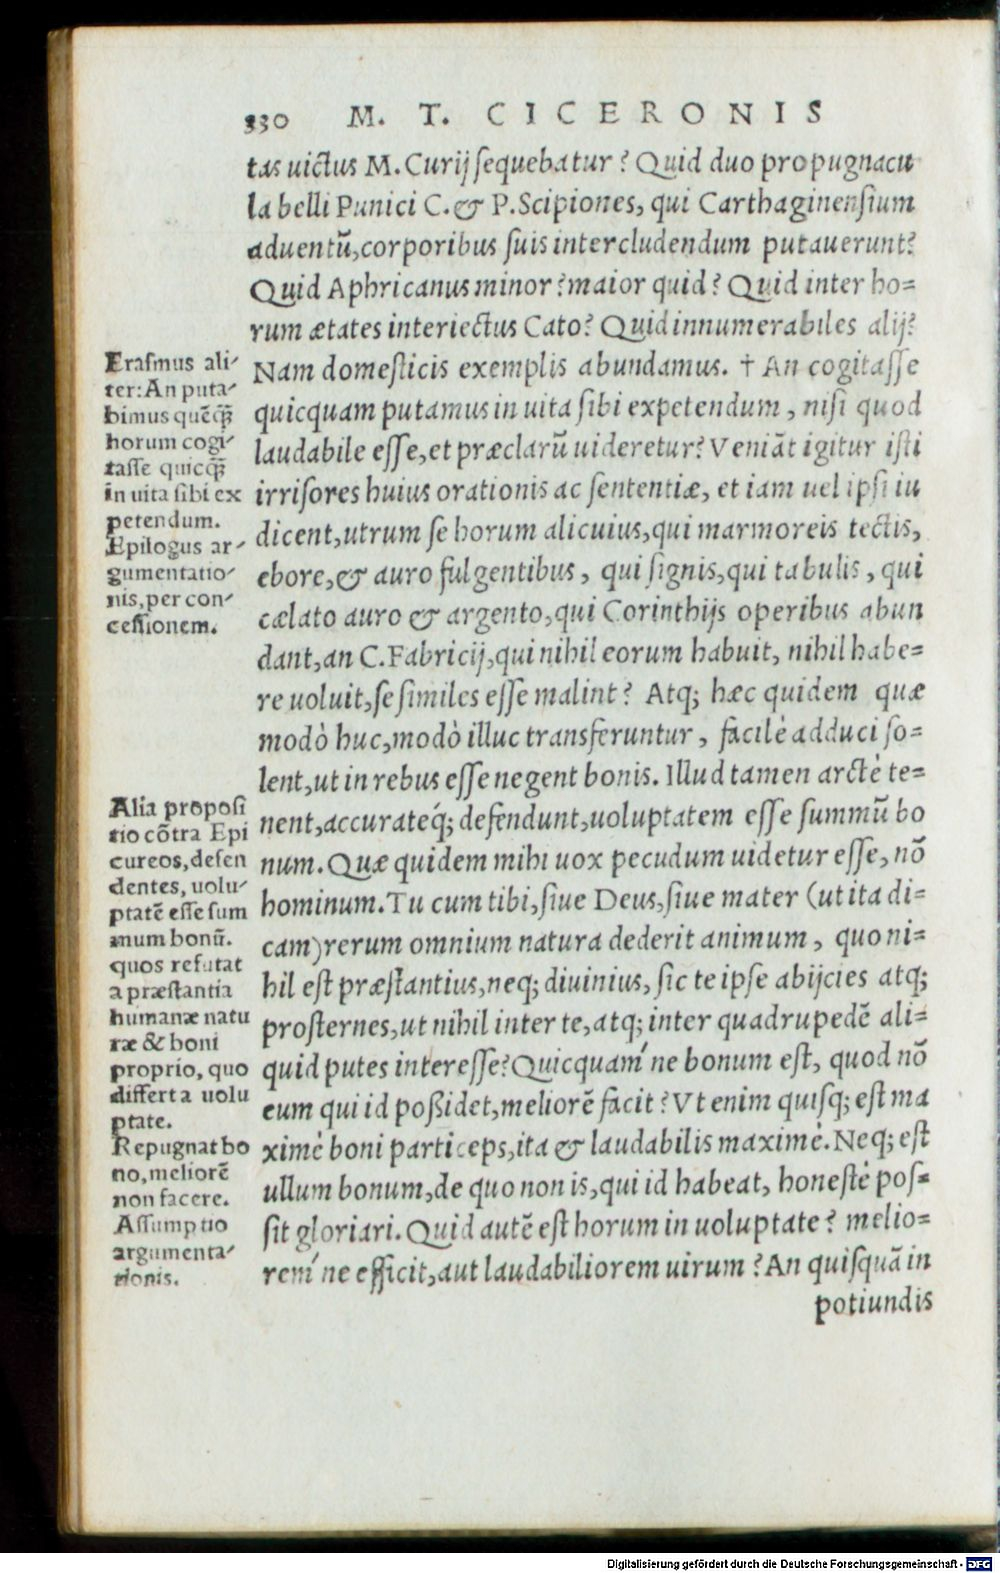 330 M. T. CICERONIS
tas uictus M. Curij sequebatur? Quid duo propugnacu
la belli Punici C. & P. Scipiones, qui Carthaginensium
aduentū, corporibus suis intercludendum putauerunt?
Quid Aphricanus minor? maior quid? Quid inter ho=
rum ætates interiectus Cato? Quid innumerabiles alij?
Nam domesticis exemplis abundamus. † An cogitasse
quicquam putamus in uita sibi expetendum, nisi quod
laudabile esse, et præclarū uideretur? Veniāt igitur isti
irrisores huius orationis ac sententiæ, et iam uel ipsi iu
dicent, utrum se horum alicuius, qui marmoreis tectis,
ebore, & auro fulgentibus, qui signis, qui tabulis, qui
cælato auro & argento, qui Corinthijs operibus abun
dant, an C. Fabricij, qui nihil eorum habuit, nihil habe=
re uoluit, se similes esse malint? Atq; hæc quidem quæ
modò huc, modò illuc transferuntur, facilè adduci so=
lent, ut in rebus esse negent bonis. Illud tamen arctè te=
nent, accuratéq; defendunt, uoluptatem esse summū bo
num. Quæ quidem mihi uox pecudum uidetur esse, nō
hominum. Tu cum tibi, siue Deus, siue mater (ut ita di=
cam) rerum omnium natura dederit animum, quo ni=
hil est præstantius, neq; diuinius, sic te ipse abijcies atq;
prosternes, ut nihil inter te, atq; inter quadrupedē ali=
quid putes interesse? Quicquam ́ne bonum est, quod nō
eum qui id poßidet, meliorē facit? Vt enim quisq; est ma
ximè boni particeps, ita & laudabilis maximè. Neq; est
ullum bonum, de quo non is, qui id habeat, honestè pos=
sit gloriari. Quid autē est horum in uoluptate? melio=
rem ́ne efficit, aut laudabiliorem uirum? An quisquā in
potiundis
Erasmus ali-
ter: An puta-
bimus quēcq̄
horum cogi-
tasse quicq̄
in uita sibi ex
petendum.
Epilogus ar-
gumentatio-
nis, per con-
cessionem.
Alia proposi
tio cōtra Epi
cureos, defen
dentes, uolu-
ptatē esse sum
mum bonū.
quos refutat
a præstantia
humanæ natu
ræ & boni
proprio, quo
differt a uolu
ptate.
Repugnat bo
no, meliorē
non facere.
Assumptio
argumenta-
tionis.
Digitalisierung gefördert durch die Deutsche Forschungsgemeinschaft - DFG